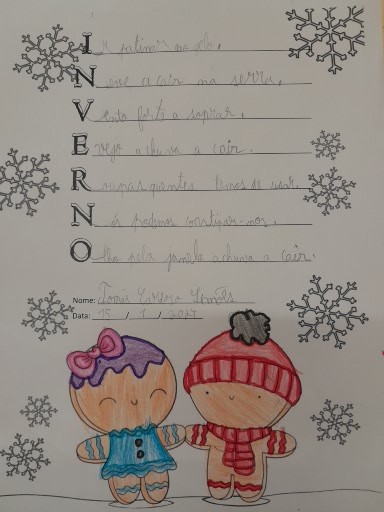 Ir patinar no gelo.
Neve a cair na serra.
Vento forte a soprar.
Vejo a chuva a cair.
Roupas quentes temos de usar.
Nós podemos constipar-nos.
Olho pela janela a chuva a cair.
Nome: Tomás
Data: 15 / 1 /